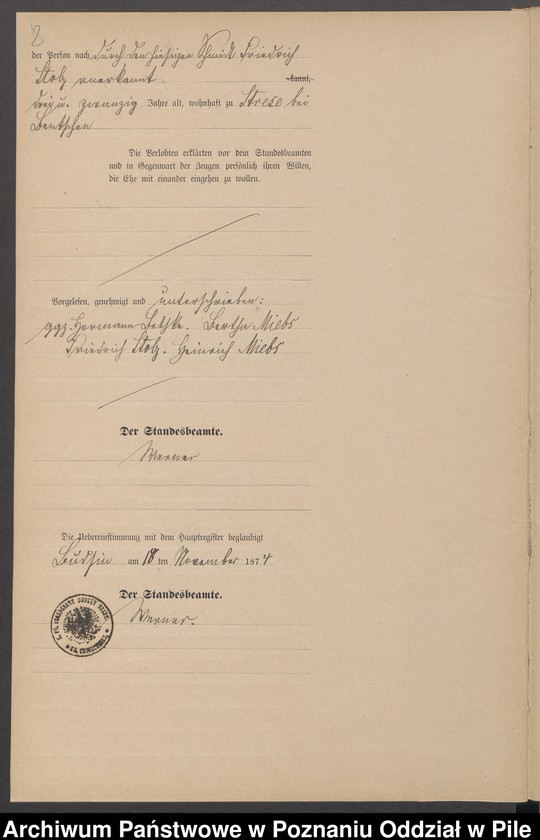 8
der Person nach durch den hiesigen Schmidt Friedrich
Stolz anerkannt kannt,
drei u. zwanzig Jahre alt, wohnhaft zu Strese bei
Bentschen
Die Verlobten erklärten vor dem Standesbeamten
und in Gegenwart der Zeugen persönlich ihren Willen,
die Ehe mit einander eingehen zu wollen.
Vorgelesen, genehmigt und unterschrieben:
ggz. Hermann Bethke. Bertha Miebs
Friedrich Stolz. Heinrich Miebs
Der Standesbeamte.
Werner
Die Uebereinstimmung mit dem Hauptregister beglaubigt
Budsin am 18 ten November 1874
Der Standesbeamte.
Werner.
Archiwum Państwowe w Poznaniu Oddział w Pile